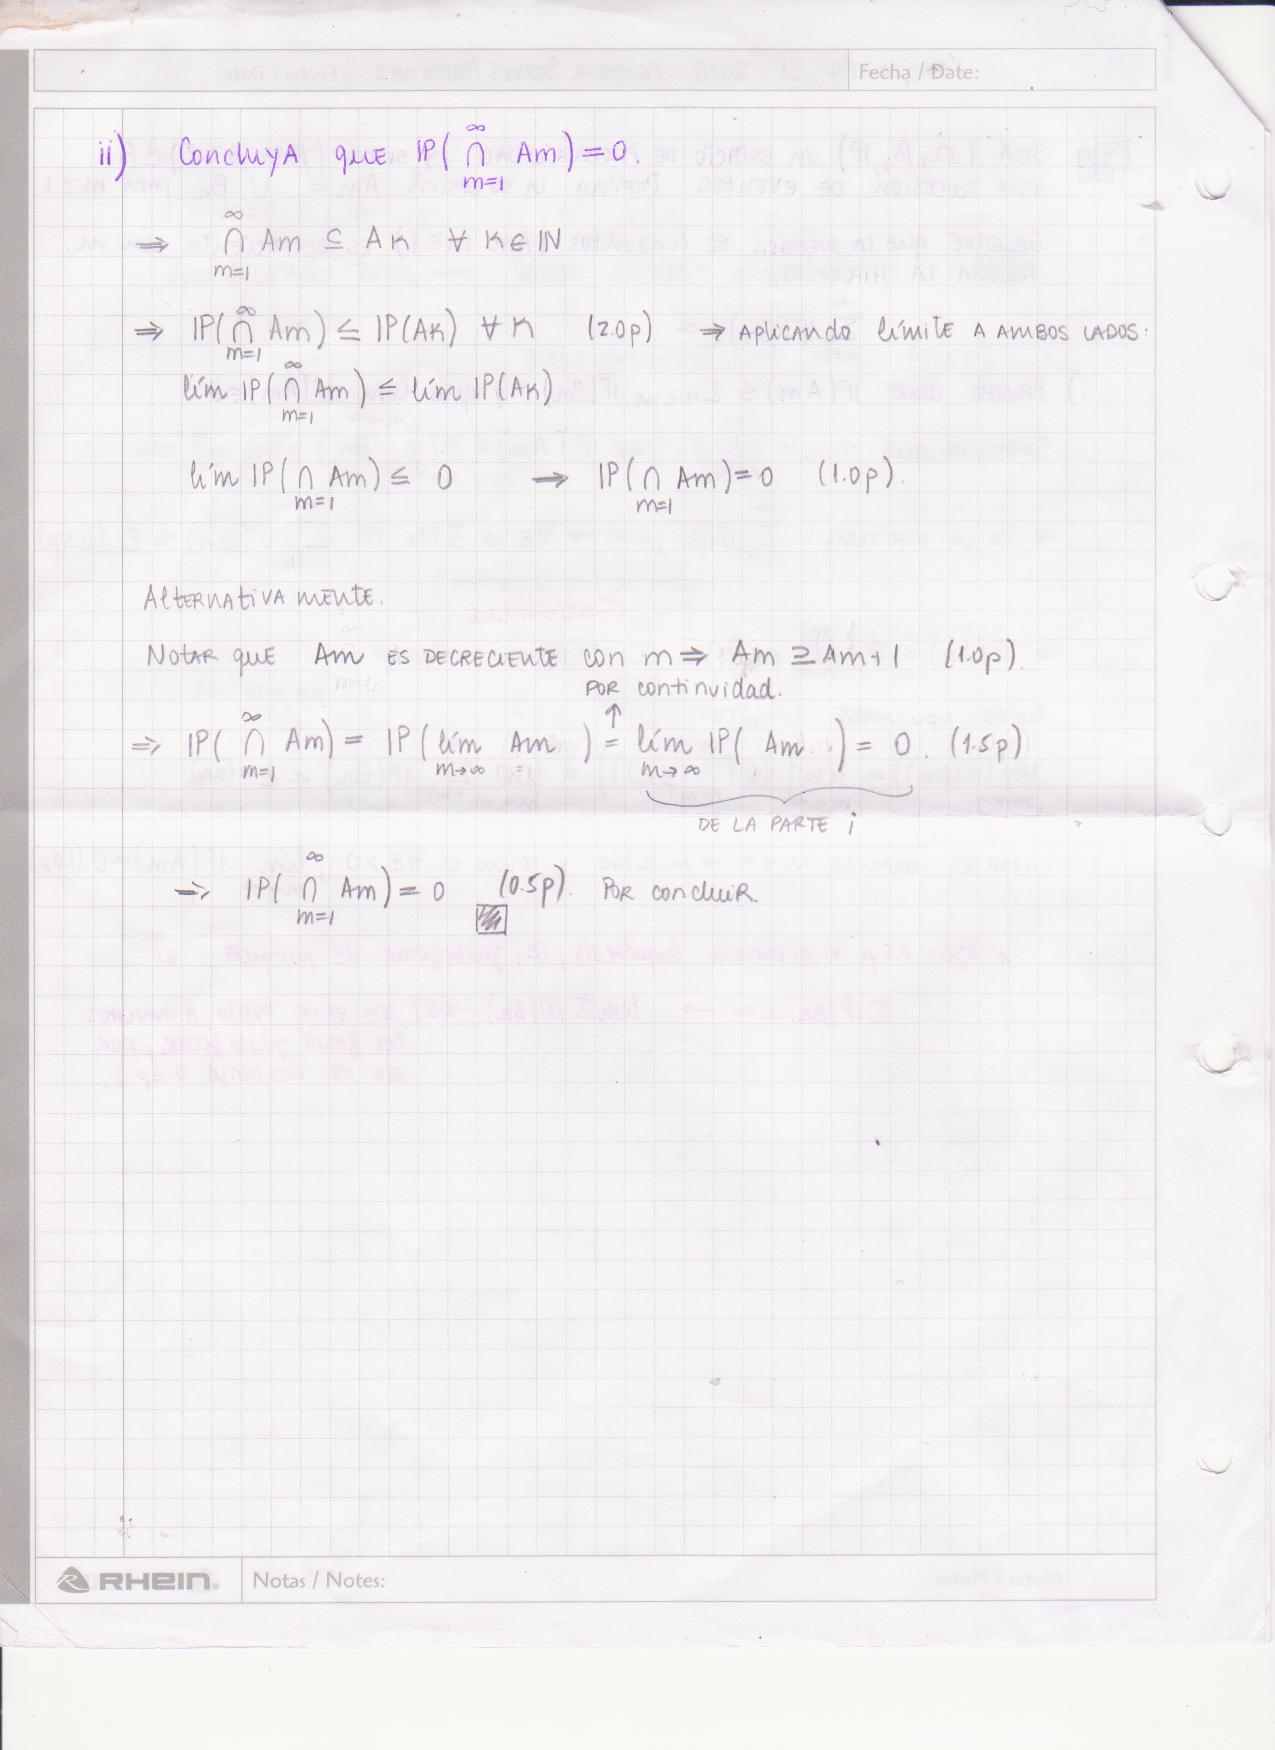 Fecha / Date:
ii) Concluya que IP( ∞∩m=1 Am) = 0.
⇒ ∞∩m=1 Am ⊆ AK ∀ K∈IN
⇒ IP( ∞∩m=1 Am) ≤ IP(AK) ∀ K (2.0p) → Aplicando límite a ambos lados:
lím IP( ∞∩m=1 Am) ≤ lím IP(AK)
lím IP( ∩m=1 Am) ≤ 0 → IP( ∩m=1 Am) = 0 (1.0p).
Alternativamente.
Notar que Am es decreciente con m ⇒ Am ⊇ Am+1 (1.0p).
por continuidad.
↑
⇒ IP( ∞∩m=1 Am) = IP( lím m→∞ Am ) = lím m→∞ IP( Am ) = 0. (1.5p)
DE LA PARTE i
⇒ IP( ∞∩m=1 Am) = 0 (0.5p). Por concluir.
RHEIN® Notas / Notes: